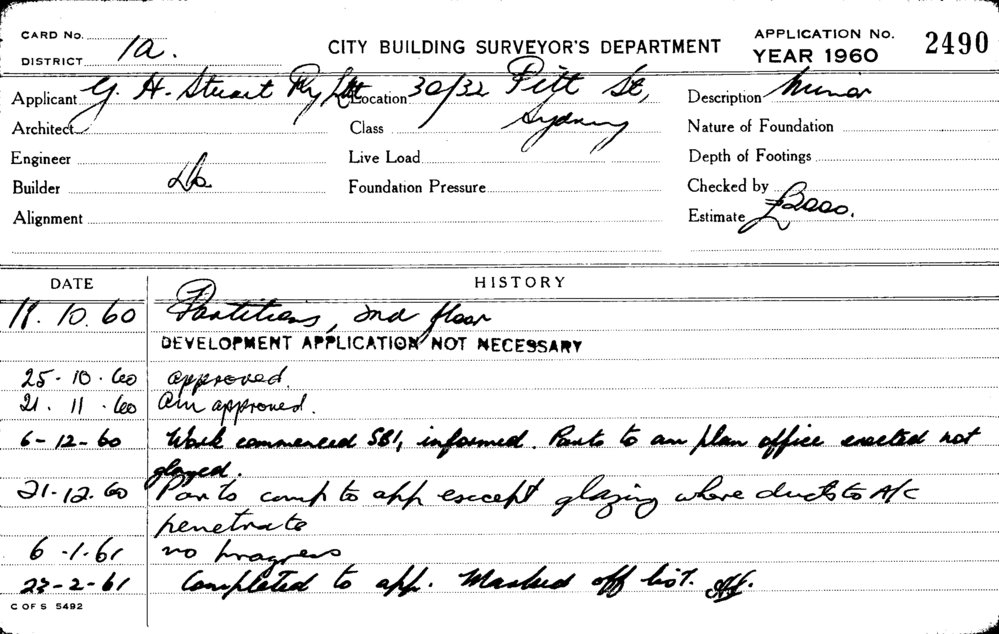 CARD No.
DISTRICT 1a.
CITY BUILDING SURVEYOR'S DEPARTMENT
APPLICATION No. 2490
YEAR 1960
Applicant G. H. Stuart Pty Ltd Location 30/32 Pitt St, Description Minor
Architect Class Sydney Nature of Foundation
Engineer Live Load Depth of Footings
Builder Do Foundation Pressure Checked by
Alignment Estimate £2000.
DATE HISTORY
11.10.60 Partitions, 2nd floor
DEVELOPMENT APPLICATION NOT NECESSARY
25-10.60 approved.
21.11.60 Am approved.
6-12-60 Work commenced informed. Parts to am plan office erected not
glazed.
21.12.60 Parts comp to app except glazing where ducts to A/C
penetrate
6-1-61 no progress
23-2-61 Completed to app. Marked off list.
C OF S 5492